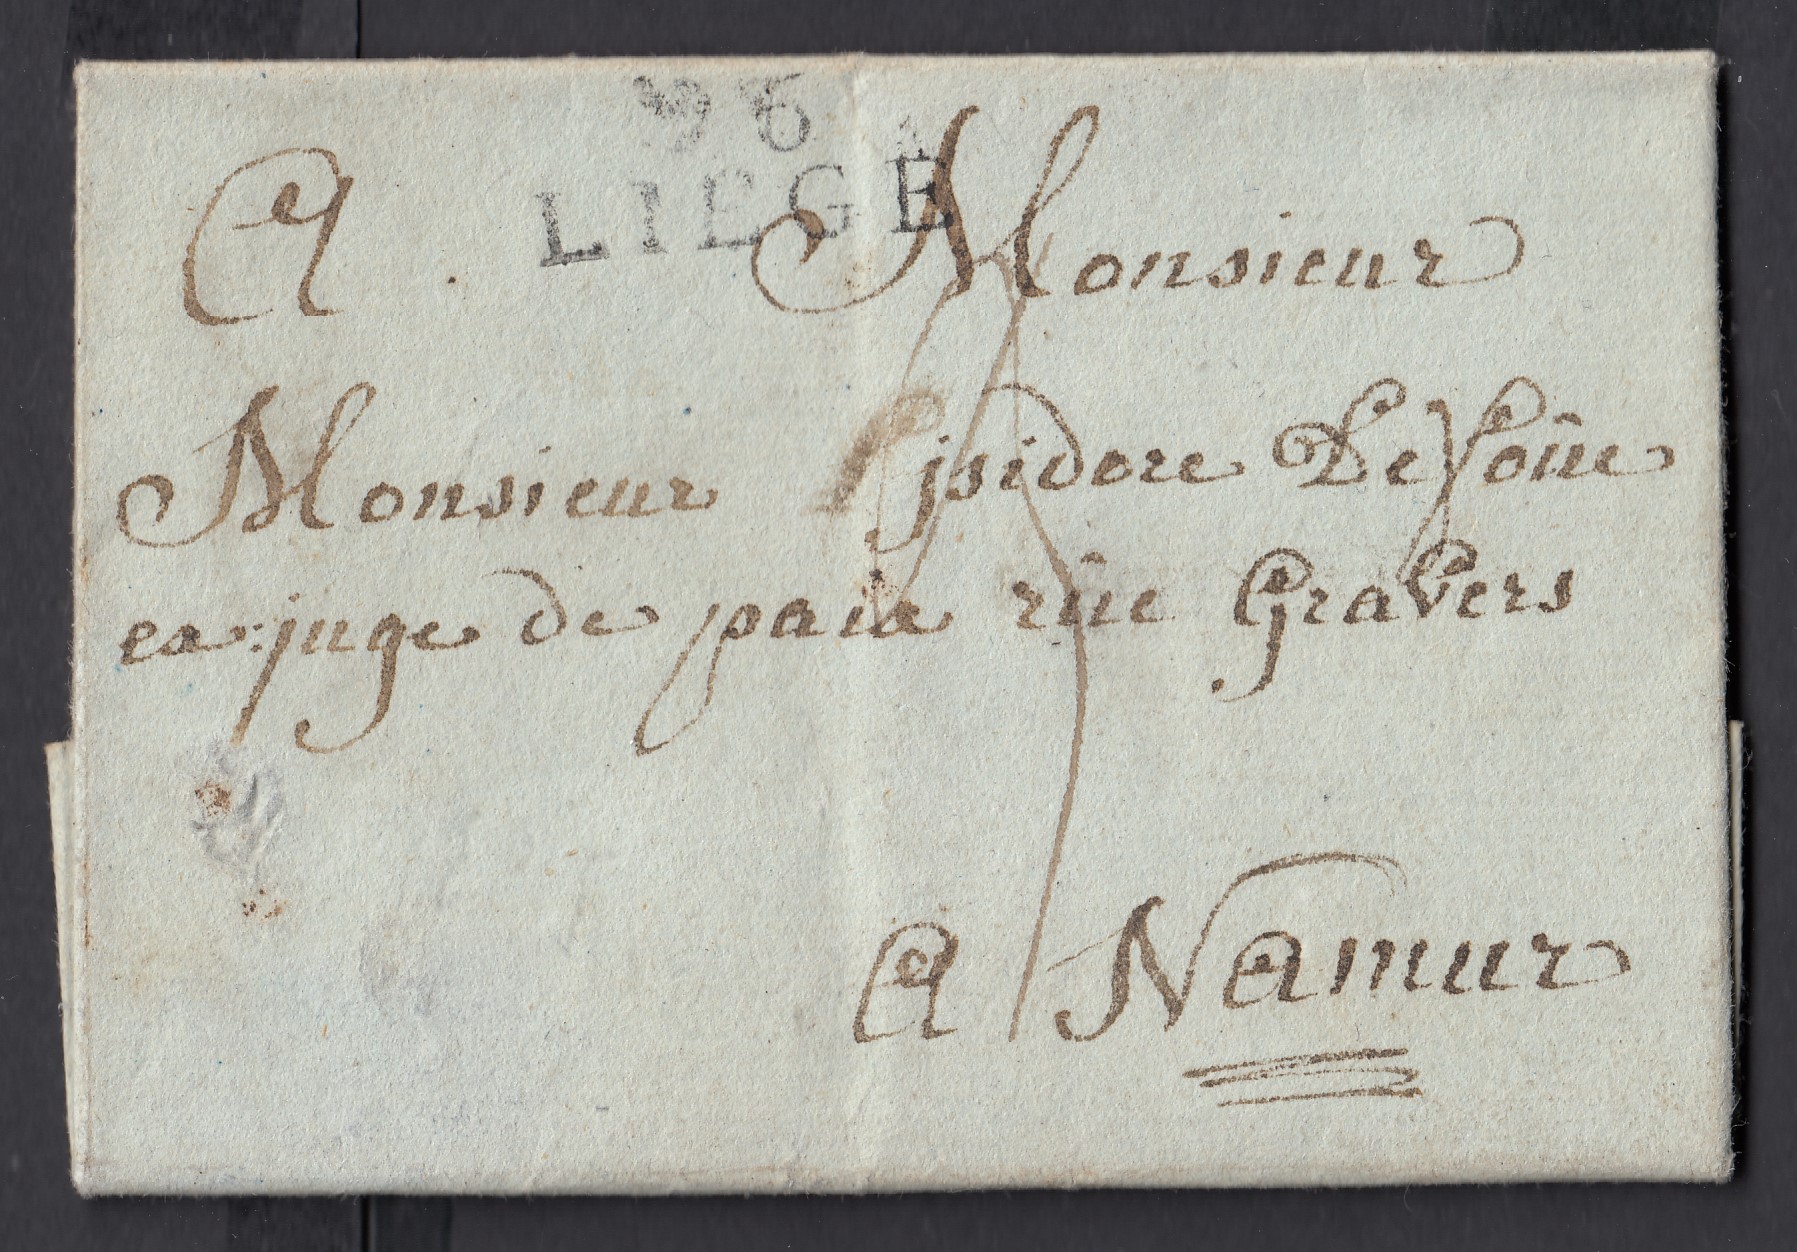 96
LIEGE
A Monsieur
Monsieur jsidore
ex: juge de paix rûe Gravers
A Namur